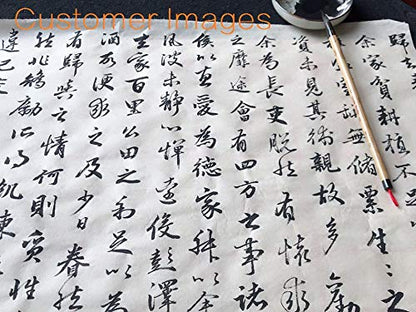 Customer Images
歸去
余家貧耕植不
室缾無儲粟生生
資未見其術親故多勸
余為長吏脫然有懷求
之靡途會有四方之事諸
侯以惠愛為德家叔以余
風波未靜心憚遠役彭澤
去家百里公田之利足以為
酒故便求之及少日眷然
有歸歟之情何則質性
然非矯勵所得飢凍
違己交